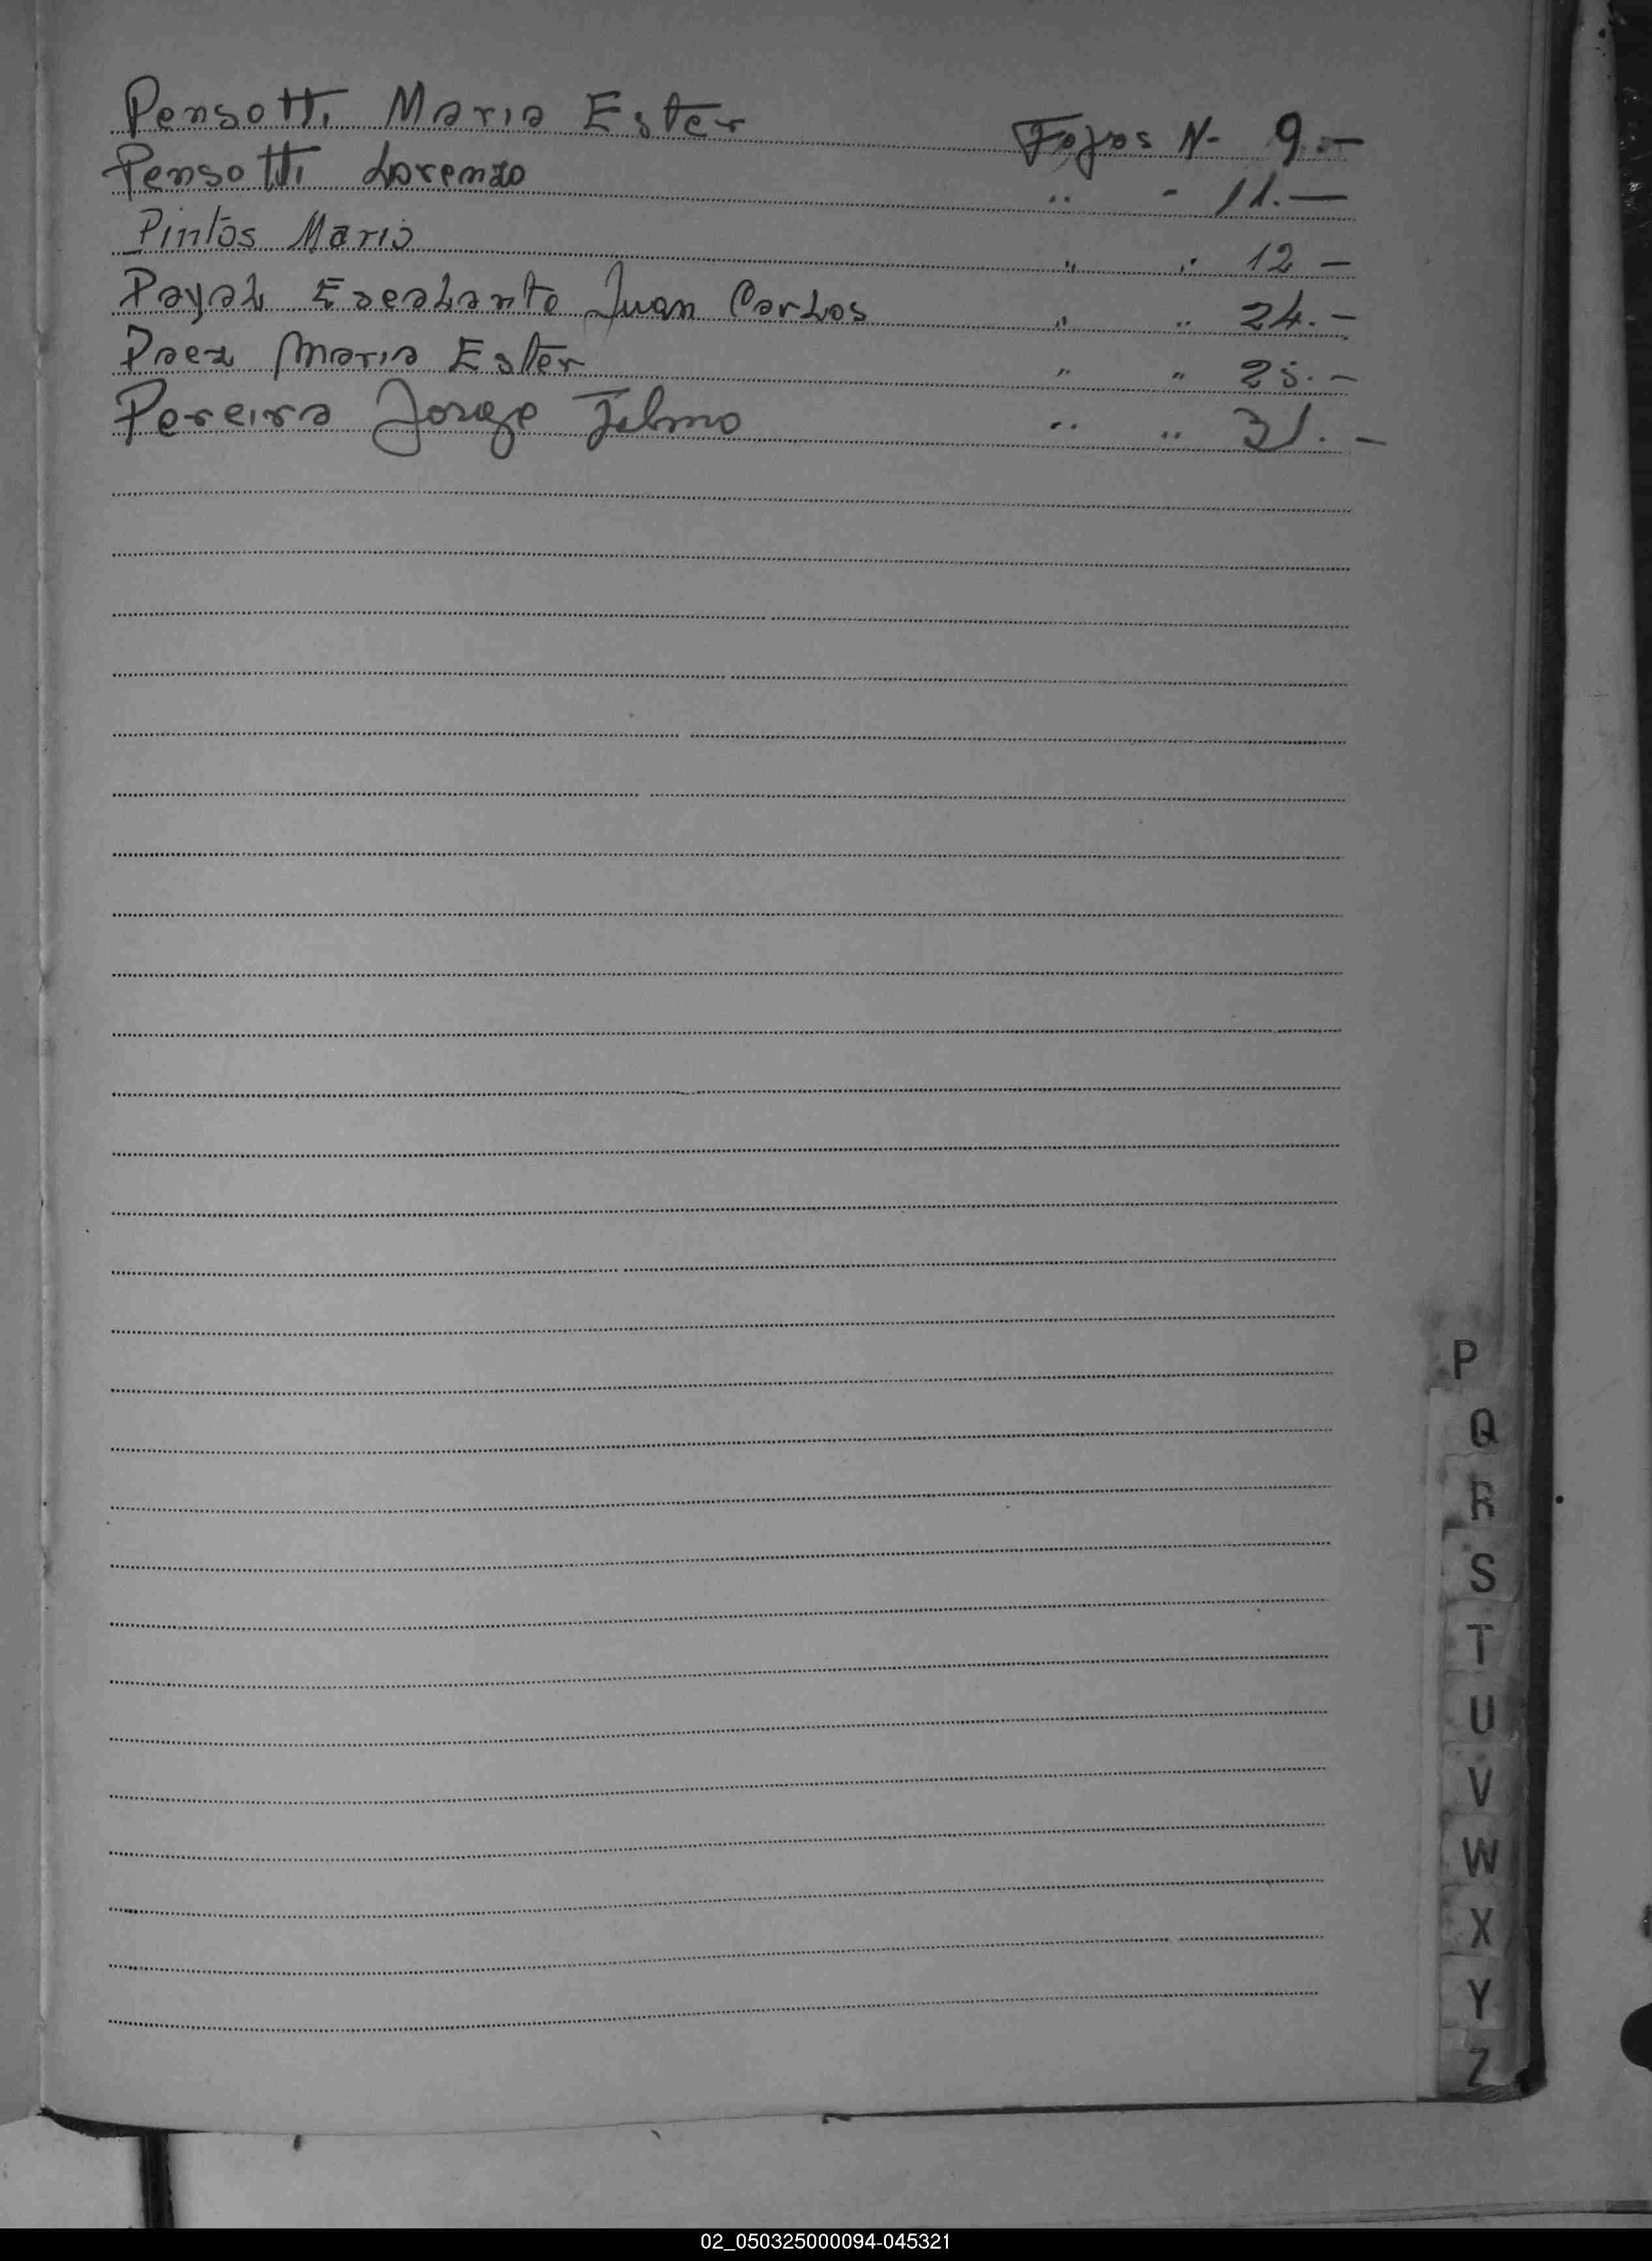 Pensotti Maria Ester Fojas N- 9.-
Pensotti Lorenzo " " 11.-
Pintos Mario " " 12-
Payal Escalante Juan Carlos " " 24.-
Paez Maria Ester " " 25.-
Pereira Jorge Telmo " " 31.-
P
Q
R
S
T
U
V
W
X
Y
Z
02_050325000094-045321